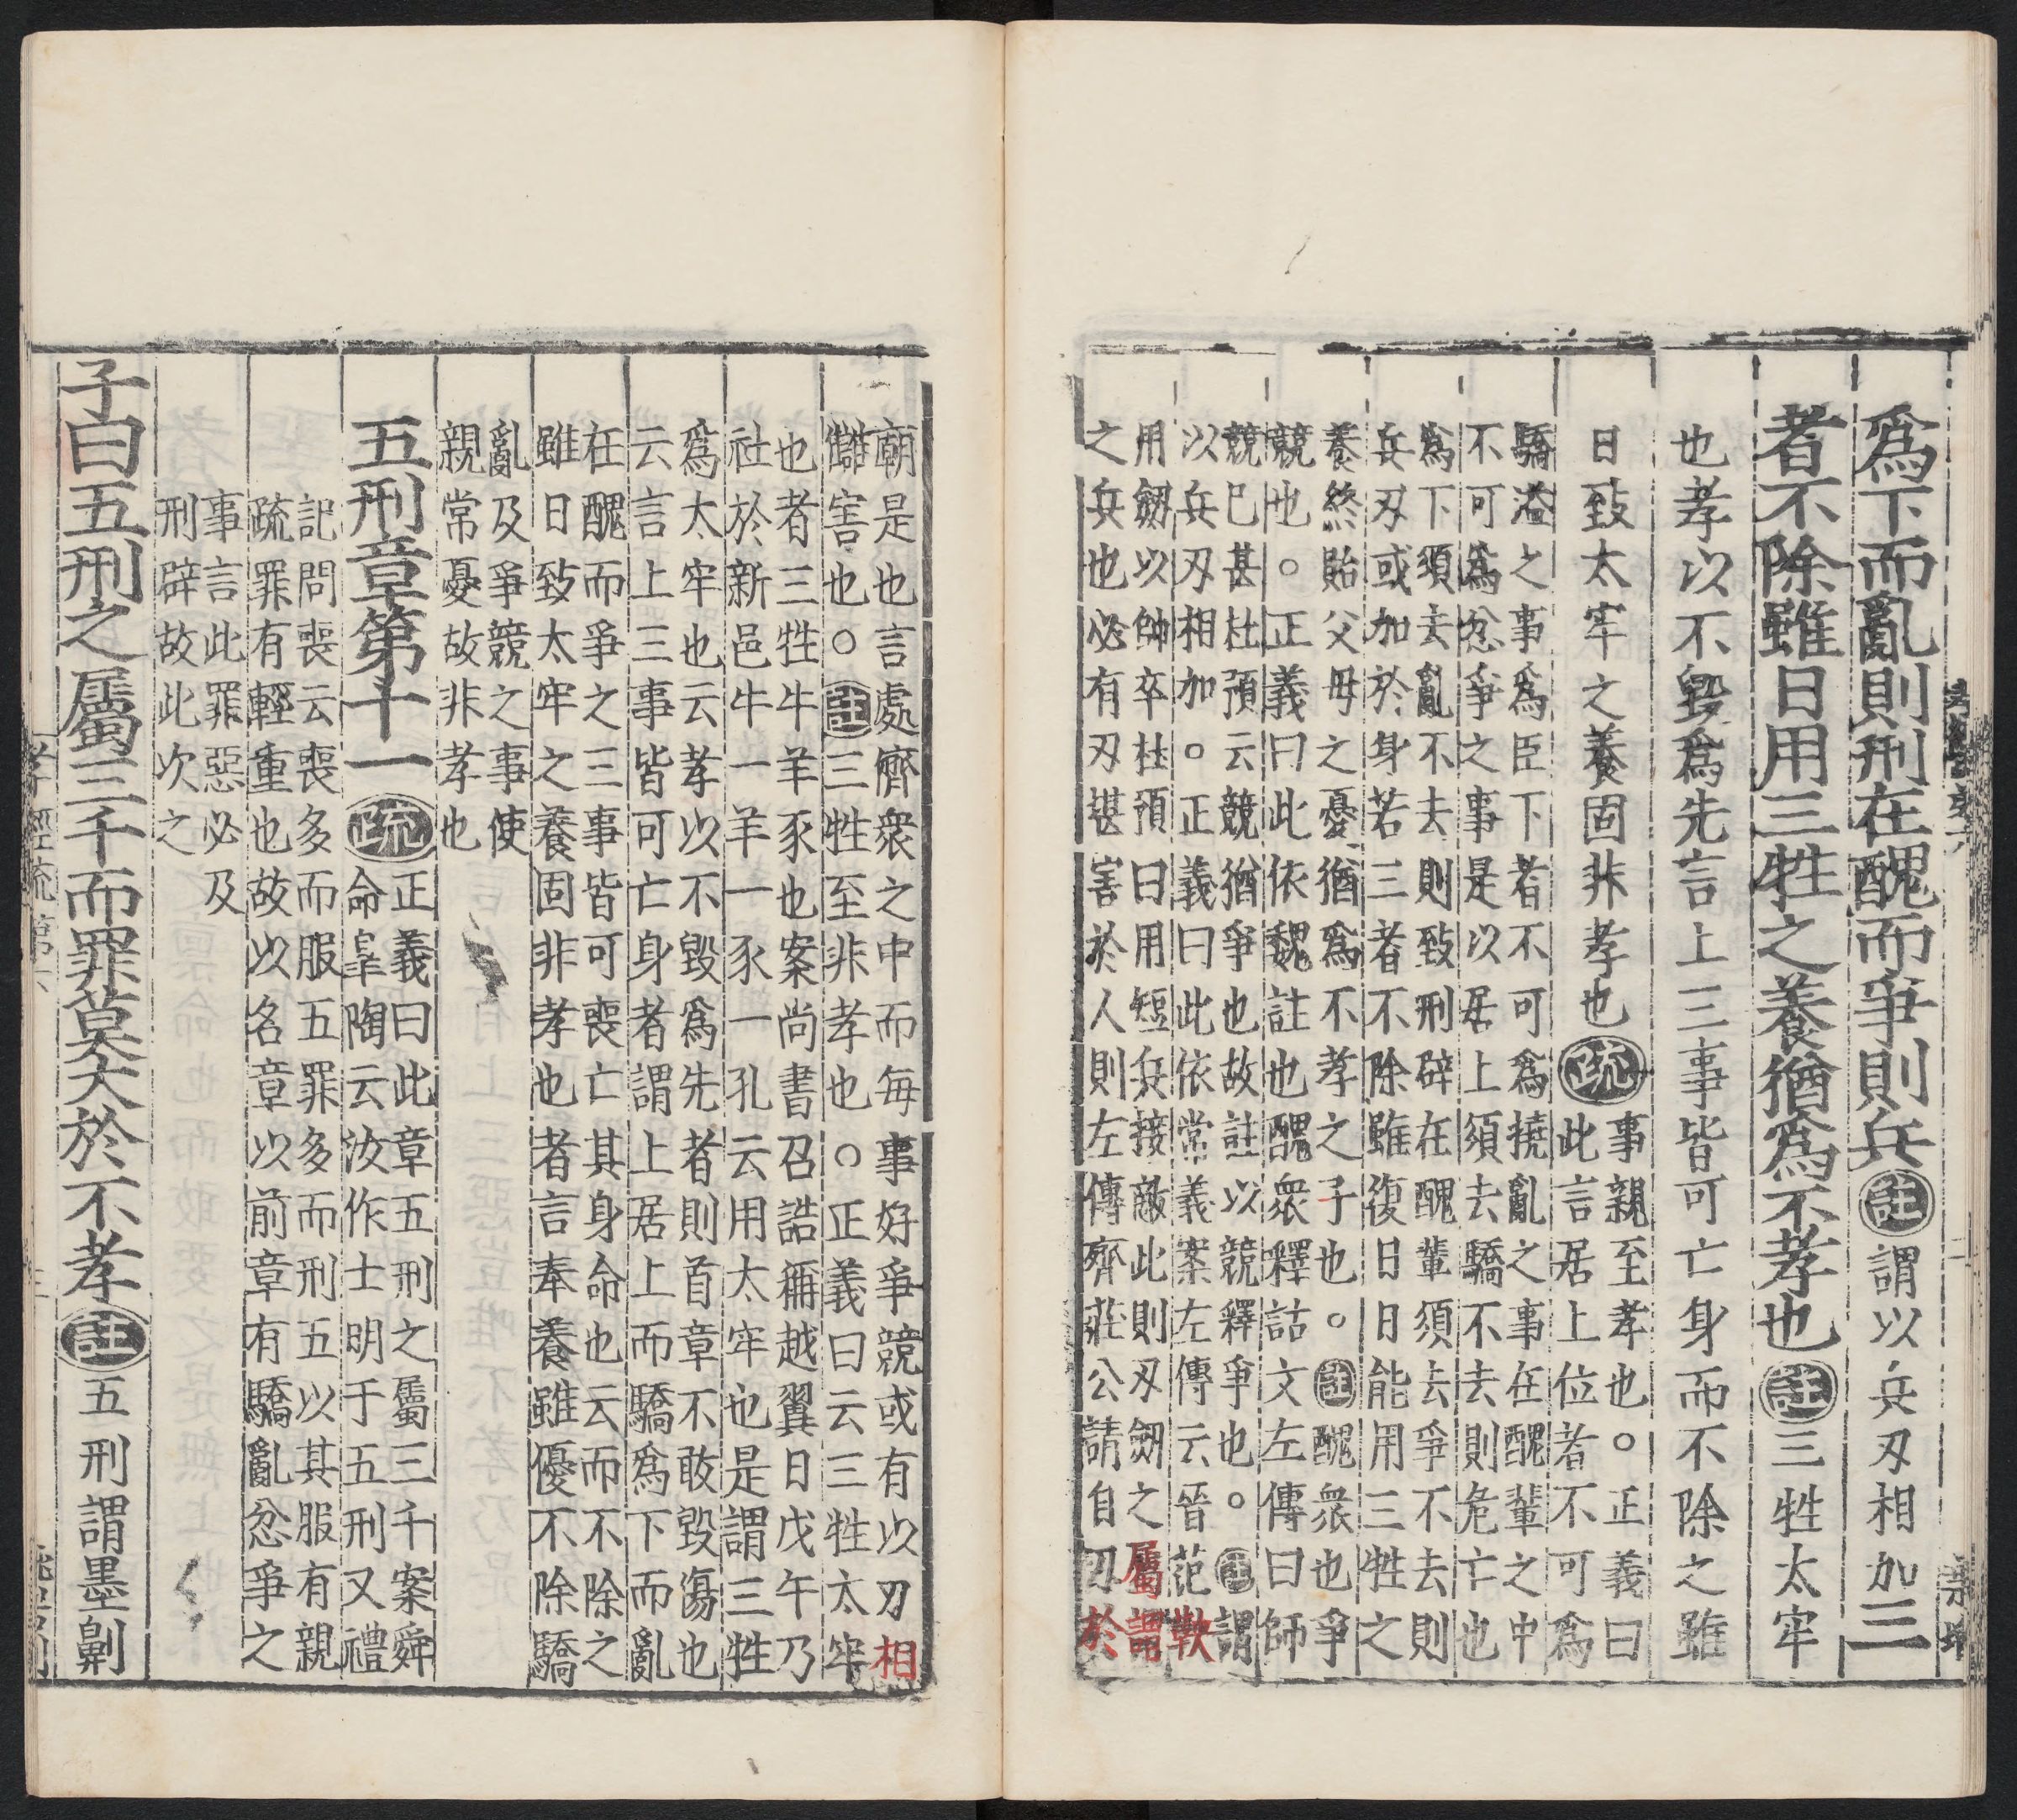 爲下而亂則刑在醜而爭則兵註謂以兵刃相加三
者不除雖日用三牲之養猶爲不孝也註三牲太牢
也孝以不毀爲先言上三事皆可亡身而不除之雖
日致太牢之養固非孝也疏事親至孝也○正義曰
此言居上位者不可爲
驕溢之事爲臣下者不可爲撓亂之事在醜輩之中
不可爲忿爭之事是以居上須去驕不去則危亡也
爲下須去亂不去則致刑辟在醜輩須去爭不去則
兵刃或加於身若三者不除雖復日日能用三牲之
養終貽父母之憂猶爲不孝之子也○註醜衆也爭
競也○正義曰此依魏註也醜衆釋詁文左傳曰師
競已甚杜預云競猶爭也故註以競釋爭也○註謂
以兵刃相加○正義曰此依常義案左傳云晉范鞅
用劔以帥卒杜預曰用短兵接敵此則刃劔之屬謂
之兵也必有刃堪害於人則左傳齊莊公請自刃於
廟是也言處儕衆之中而每事好爭競或有以刃相
讎害也○註三牲至非孝也○正義曰云三牲太牢
也者三牲牛羊豕也案尚書召誥稱越翼日戊午乃
社於新邑牛一羊一豕一孔云用太牢也是謂三牲
爲太牢也云孝以不毀爲先者則首章不敢毀傷也
云言上三事皆可亡身者謂上居上而驕爲下而亂
在醜而爭之三事皆可喪亡其身命也云而不除之
雖日致太牢之養固非孝也者言奉養雖優不除驕
亂及爭競之事使
親常憂故非孝也
五刑章第十一疏正義曰此章五刑之屬三千案舜
命皐陶云汝作士明于五刑又禮
記問喪云喪多而服五罪多而刑五以其服有親
疏罪有輕重也故以名章以前章有驕亂忿爭之
事言此罪惡必及
刑辟故此次之
子曰五刑之屬三千而罪莫大於不孝註五刑謂墨劓